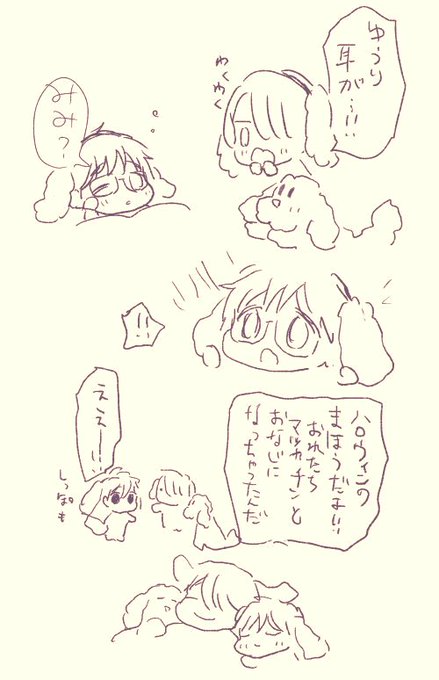 ゆうり
耳が…!!!
わくわく
みみ?
!!
ハロウィンの
まほうだよ!!
おれたち
マッカチンと
おなじに
なっちゃったんだ
ええー!!!
しっぽも